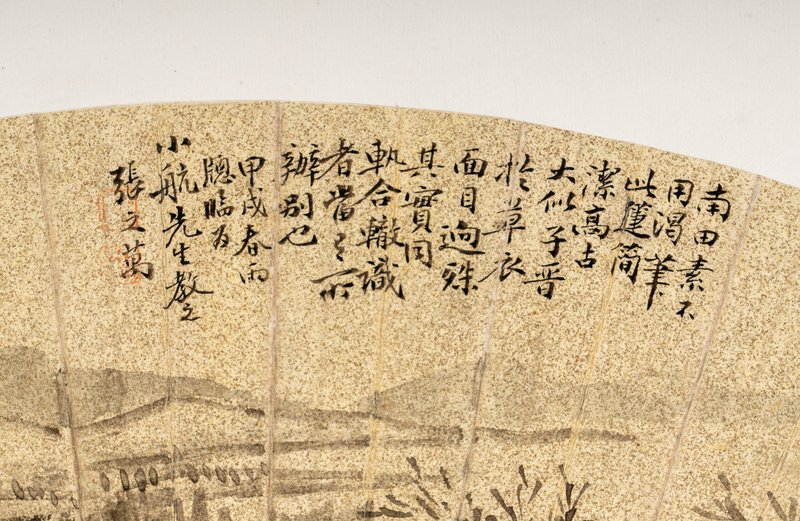 南田素不
用渴筆
此箑簡
潔高古
大似子晋
於草衣
面目迥殊
其實同
軌合轍識
者當之所
辦別也
甲戌春雨
牕臨为
小航先生教之
張之萬